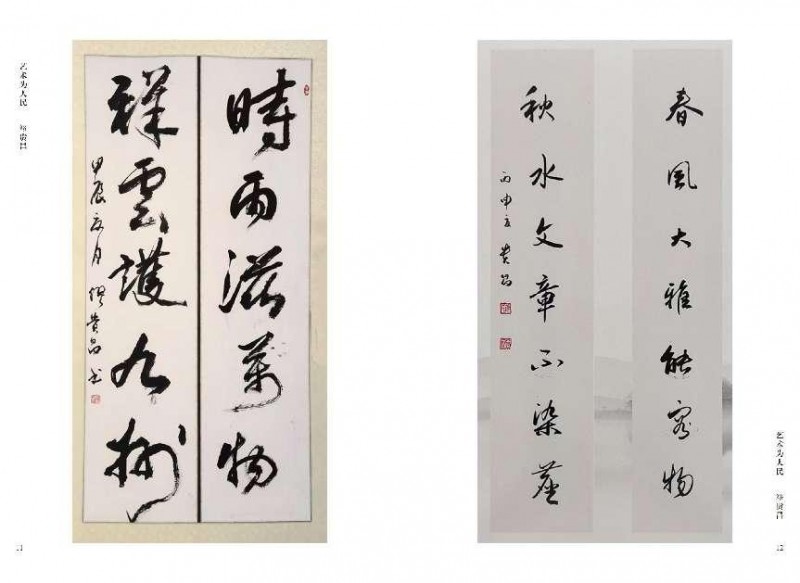 艺术为人民 缪贵昌
時雨滋萬物
祥雲護九州
甲辰夏月 缪贵昌书
11
春風大雅能容物
秋水文章不染塵
丙申夏 贵昌
艺术为人民 缪贵昌
12